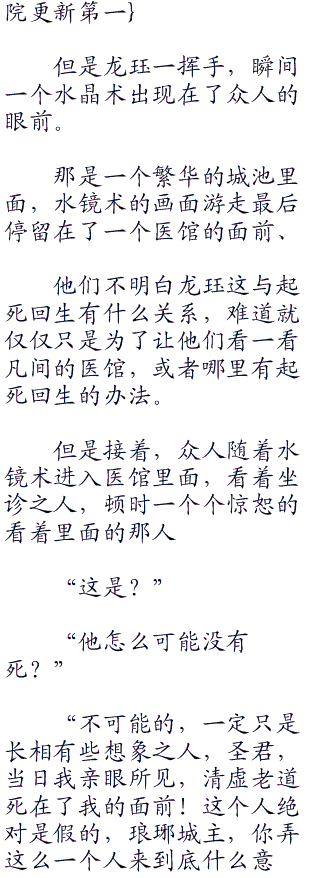 院更新第一}
但是龙珏一挥手，瞬间
一个水晶术出现在了众人的
眼前。
那是一个繁华的城池里
面，水镜术的画面游走最后
停留在了一个医馆的面前、
他们不明白龙珏这与起
死回生有什么关系，难道就
仅仅只是为了让他们看一看
凡间的医馆，或者哪里有起
死回生的办法。
但是接着，众人随着水
镜术进入医馆里面，看着坐
诊之人，顿时一个个惊恕的
看着里面的那人
“这是？”
“他怎么可能没有
死？”
“不可能的，一定只是
长相有些想象之人，圣君，
当日我亲眼所见，清虚老道
死在了我的面前！这个人绝
对是假的，琅琊城主，你弄
这么一个人来到底什么意